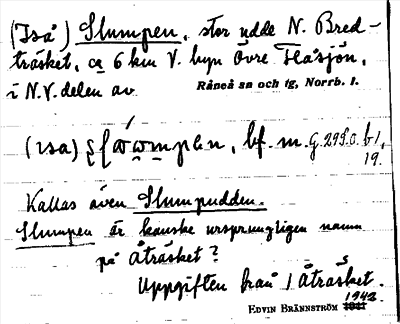 (Iså) Slumpen, stor udde N. Bred-
träsket, ca 6 km V. byn Övre Flåsjön,
i N.V. delen av
Råneå sn och tg, Norrb. l.
bf. m. G. 295.0. b 1,
19.
Kallas även Slumpudden.
Slumpen är kanske ursprungligen namn
på Åträsket?
Uppgiften från 1 Åträsket.
EDVIN BRÄNNSTRÖM 1942